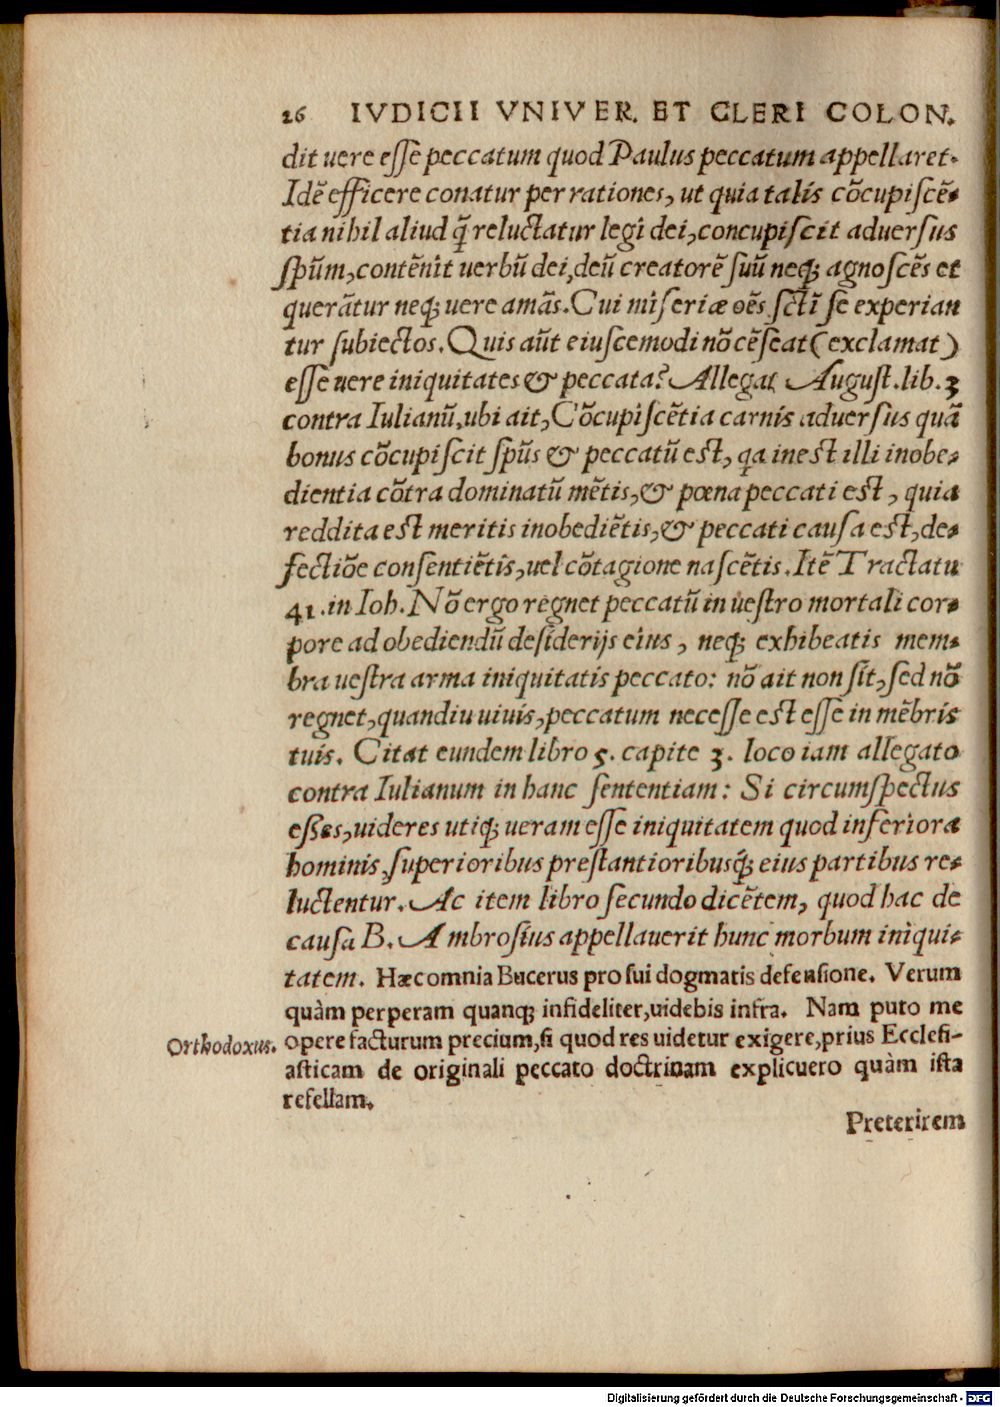 26 IVDICII VNIVER. ET CLERI COLON.
dit uere esse peccatum quod Paulus peccatum appellaret.
Idẽ efficere conatur per rationes, ut quia talis cõcupiscẽ-
tia nihil aliud q̃ reluctatur legi dei, concupiscit aduersus
spũm, contẽnit uerbũ dei, deũ creatorẽ suũ neq; agnoscẽs et
querãtur neq; uere amãs. Cui miseriæ oẽs sctĩ se experian
tur subiectos. Quis aũt eiuscemodi nõ cẽseat (exclamat)
esse uere iniquitates & peccata? Allegat August. lib. 3
contra Iulianũ, ubi ait, Cõcupiscẽtia carnis aduersus quã
bonus cõcupiscit spũs & peccatũ est, qa inest illi inobe-
dientia cõtra dominatũ mẽtis, & pœna peccati est, quia
reddita est meritis inobediẽtis, & peccati causa est, de-
fectiõe consentiẽtis, uel cõtagione nascẽtis. Itẽ Tractatu
41. in Ioh. Nõ ergo regnet peccatũ in uestro mortali cor-
pore ad obediendũ desiderijs eius, neq; exhibeatis mem-
bra uestra arma iniquitatis peccato: nõ ait non sit, sed nõ
regnet, quandiu uiuis, peccatum necesse est esse in mẽbris
tuis. Citat eundem libro 5. capite 3. loco iam allegato
contra Iulianum in hanc sententiam: Si circumspectus
esses, uideres utiq; ueram esse iniquitatem quod inferiora
hominis, superioribus prestantioribusq́; eius partibus re-
luctentur. Ac item libro secundo dicẽtem, quod hac de
causa B. Ambrosius appellauerit hunc morbum iniqui-
tatem. Hæc omnia Bucerus pro sui dogmatis defensione. Verum
quàm perperam quanq; infideliter, uidebis infra. Nam puto me
Orthodoxus. opere facturum precium, si quod res uidetur exigere, prius Ecclesi-
asticam de originali peccato doctrinam explicuero quàm ista
refellam.
Preterirem
Digitalisierung gefördert durch die Deutsche Forschungsgemeinschaft - DFG